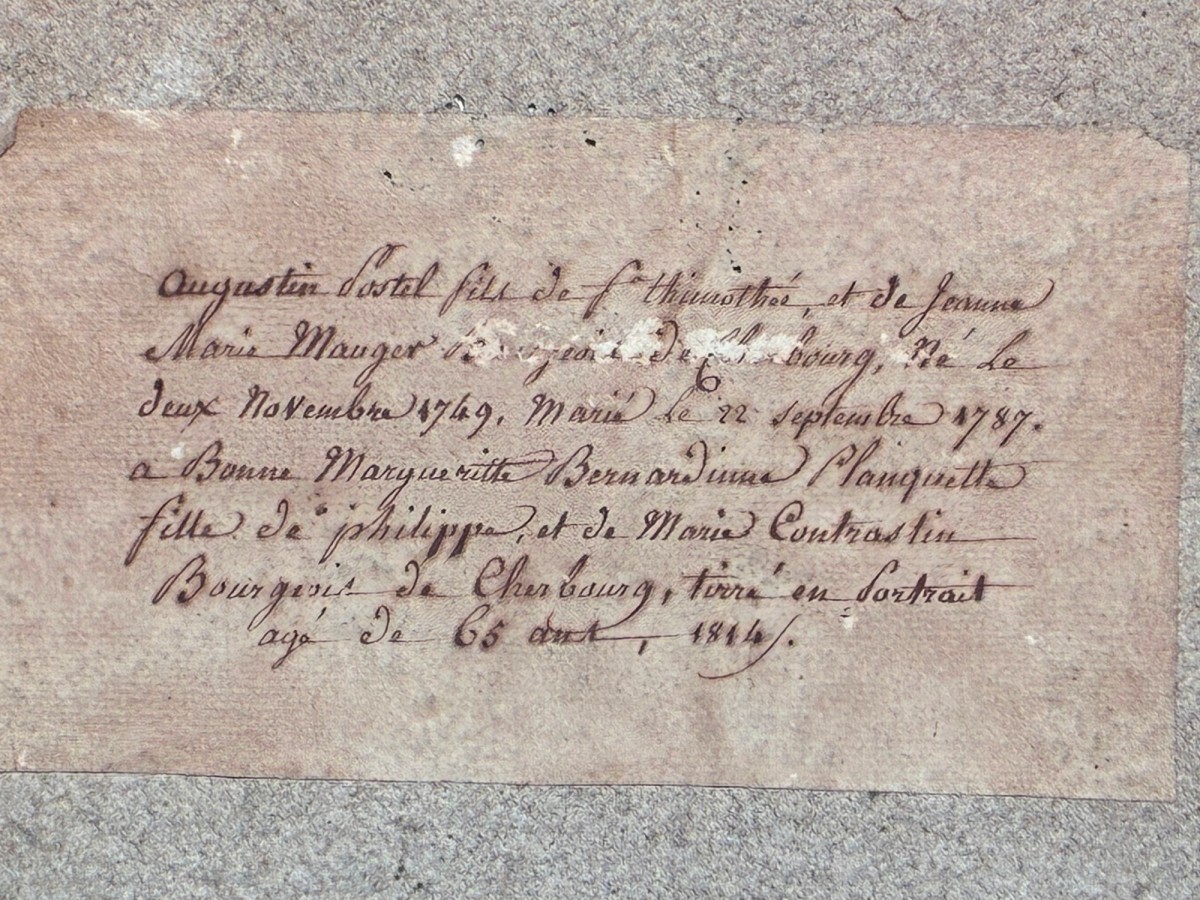 Augustin Postel fils de fs thimothée, et de Jeanne
Marie Mauger Bourgeois de Cherbourg, Né Le
deux Novembre 1749, Marié Le 22 septembre 1787.
a Bonne Margueritte Bernardinne Planquette
fille de philippe, et de Marie Contrastin
Bourgeois de Cherbourg, tirré en Portrait
agé de 65 ans, 1814.